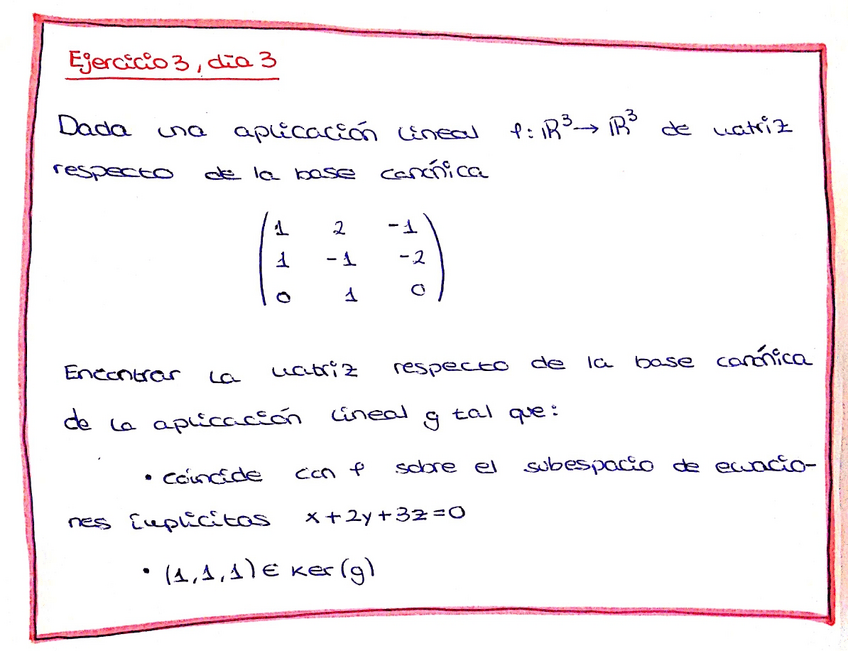 Ejercicio 3, día 3
Dada una aplicación lineal f: ℝ³→ ℝ³ de matriz
respecto de la base canónica
1 2 -1
1 -1 -2
0 1 0
Encontrar la matriz respecto de la base canónica
de la aplicación lineal g tal que:
• coincide con f sobre el subespacio de ecuacio-
nes implícitas x+2y+3z=0
• (1,1,1) ∈ Ker(g)